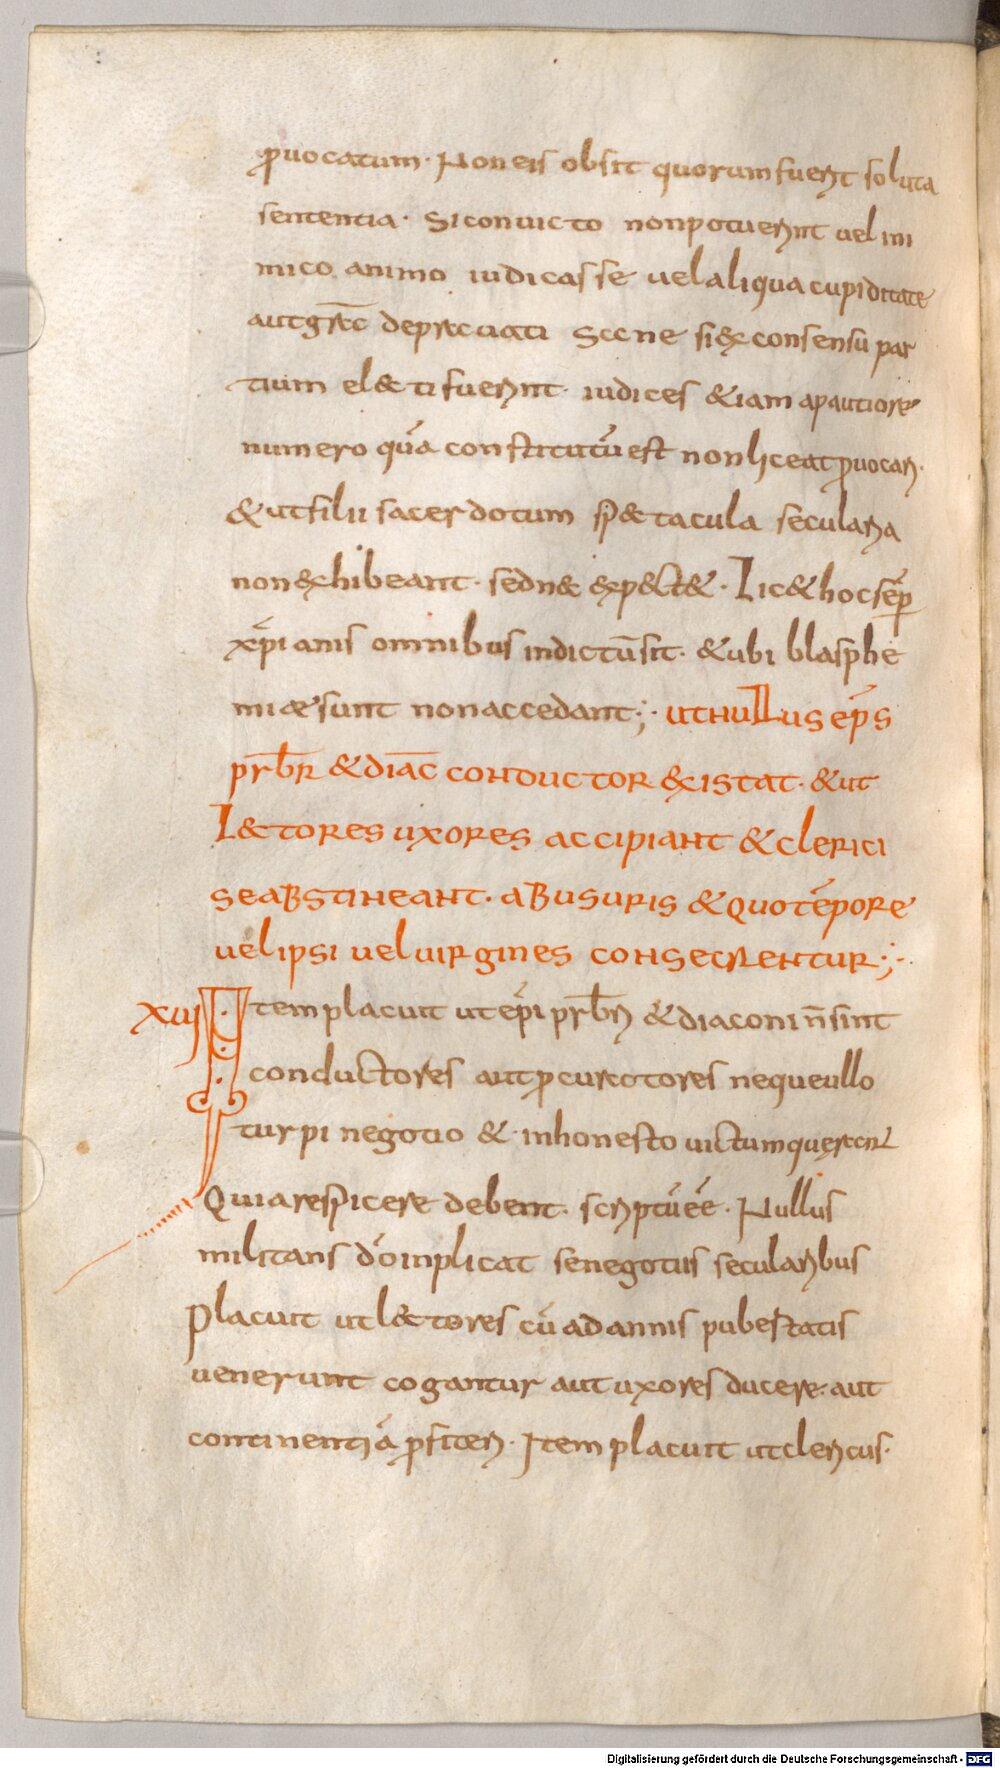 ꝓuocatum· Non eis obsit quorum fuerit soluta
sententia· Si conuicto non potuerint uel ini
mico animo iudicasse uel aliqua cupiditate
aut grac̄ deprauati Sane si ex consensu par
tium electi fuerint· iudices &iam a pauciore
numero quā constitutū est non liceat ꝓuocari·
& ut filii sacerdotum sp&tacula secularia
non exhibeant· sed n& exp&ct&· Lic& hoc sēp
xp̄ianis omnibus indictū sit· & ubi blasphe
miae sunt non accedant;· ut nullus ep̄s
prb̄r & diac̄ conductor existat· & ut
l&tores uxores accipiant & clerici
se abstineant· ab usuris & quo tēpore
uel ipsi uel uirgines consecrentur;·
XUI Item placuit ut ep̄i prb̄ri & diaconi n̄ sint
conductores aut ꝓcuratores neque ullo
turpi negotio & inhonesto uictum querant
Quia respicere debent· scriptū ēē· Nullus
militans dō inplicat se negotiis secularibus
Placuit ut l&tores cū ad annis pubertatis
uenerunt cogantur aut uxores ducere· aut
continentiā ꝓfiteri· Item placuit ut clericus·
Digitalisierung gefördert durch die Deutsche Forschungsgemeinschaft - DFG